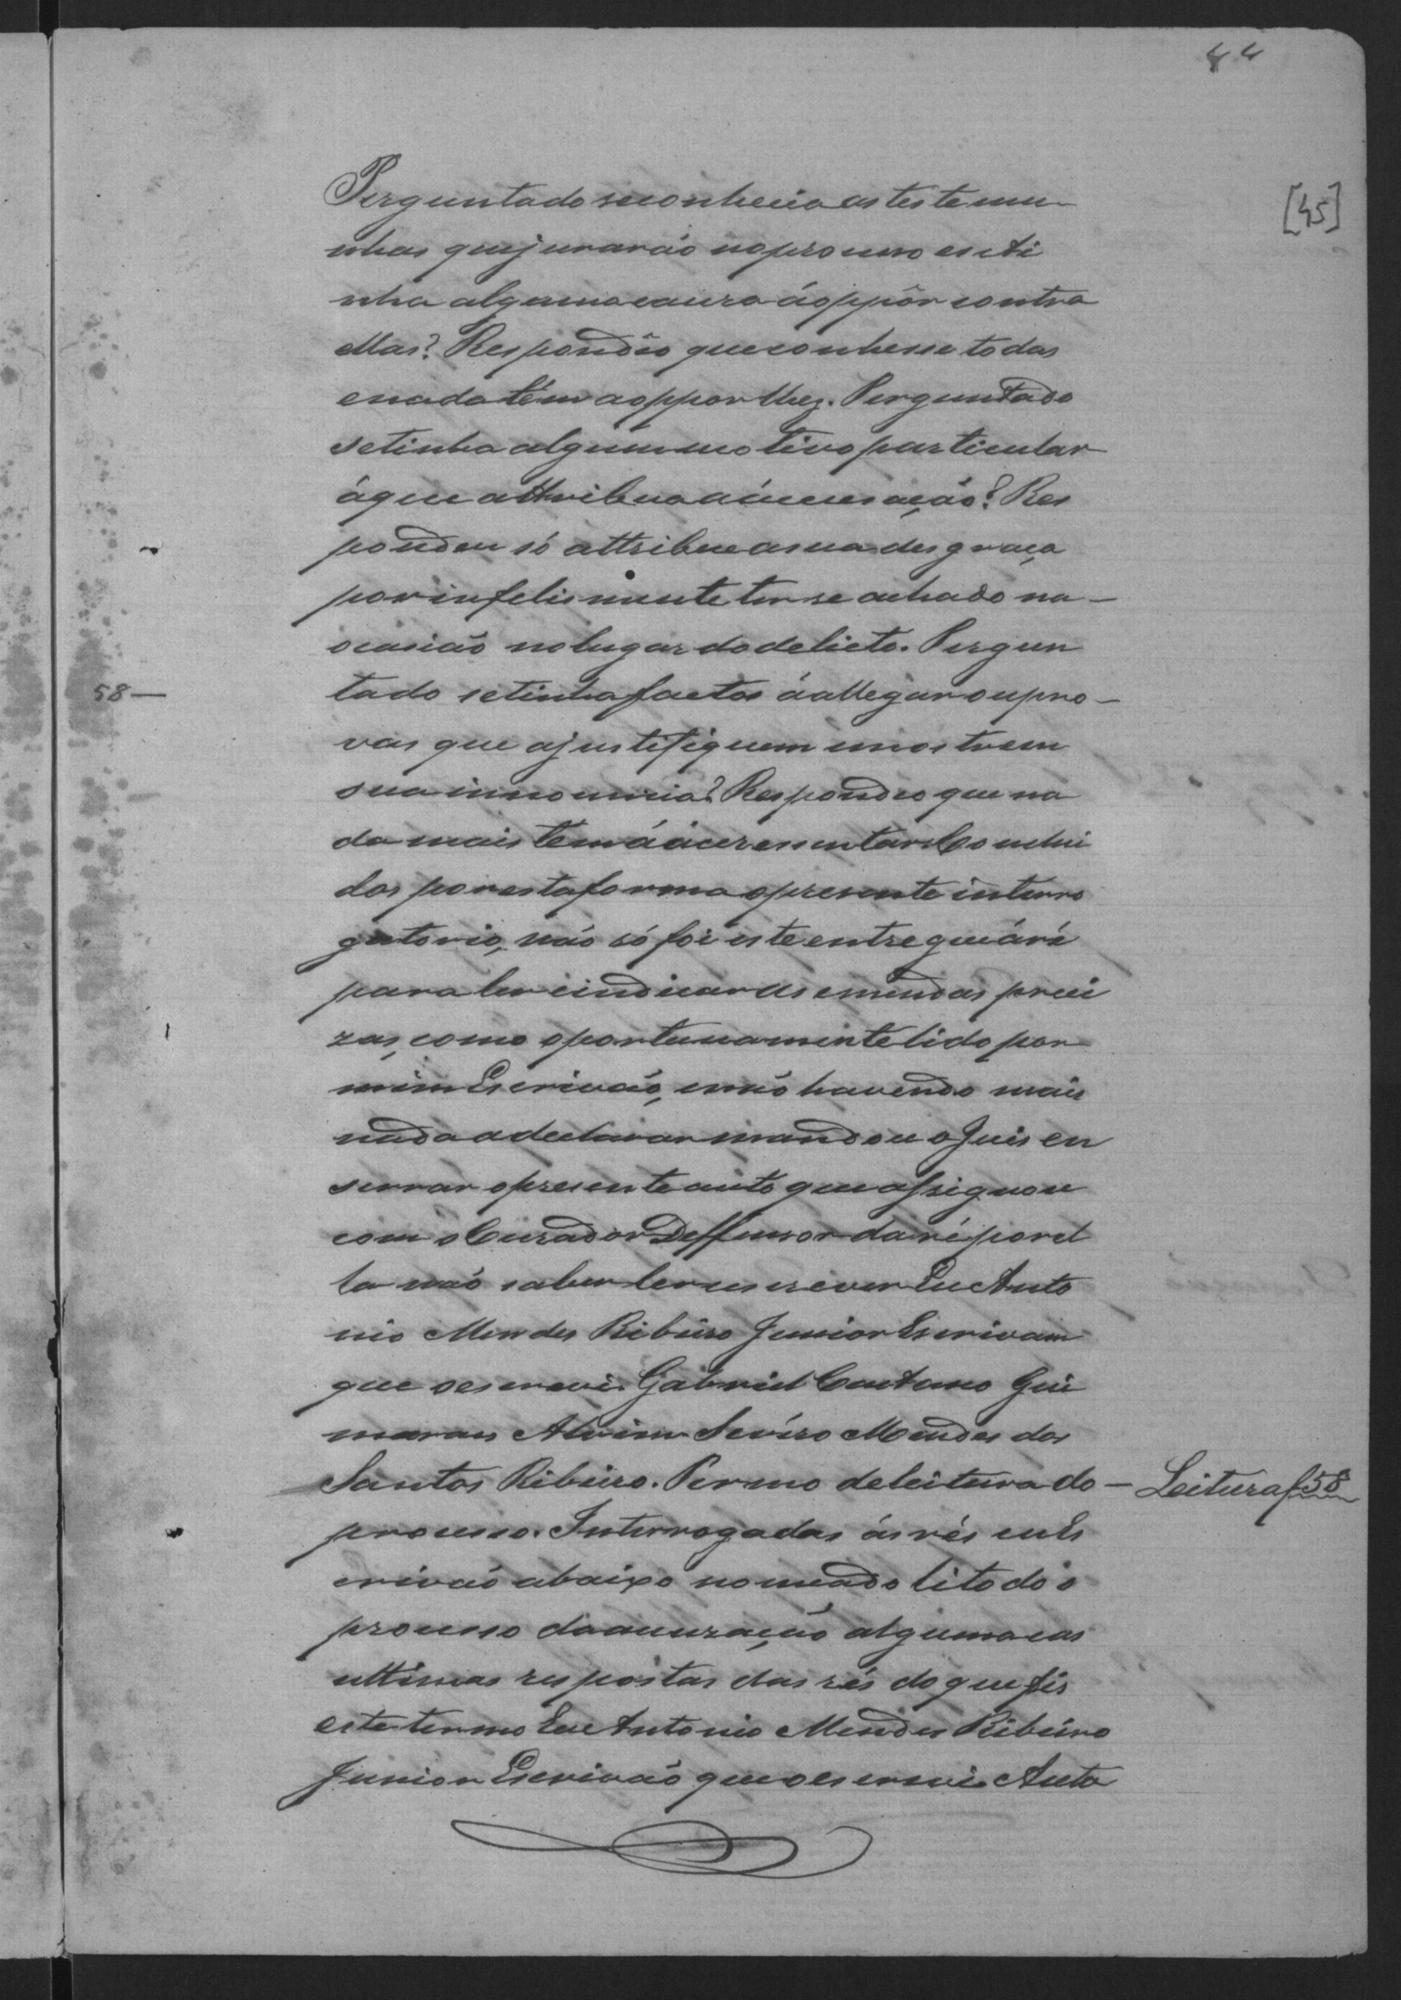 44
[45]
Perguntado se conhecia as testemu-
nhas que jurarão no processo e se ti
nha alguma cauza á oppôr contra
ellas? Respondêo que conhesse todas
e nada têm a oppor lhes. Perguntado
se tinha algum motivo particular
á que attribua a áccusação? Res
pondeu só attribue a sua desgraça
por infelismente ter se achado na-
ocasião no lugar do delicto. Pergun
tado se tinha factos á allegar ou pro-
58-
vas que a justifiquem e mostrem
sua innocencia? Respondeo que na
da mais tem á ácressentar. Conclui
dos por esta forma o presente interro
gatorio, não só foi este entregue á ré
para ler e indicar as emendas preci
zas, como oportunamente lido por
mim Escrivão, e não havendo mais
nada a declarar mandou o Juis en
serrar o presente auto que assignou
com o Curador Deffensor da ré por el
la não saber ler e escrever Eu Anto
nio Mendes Ribeiro Junior Escrivam
que o escrevi. Gabriel Caetano Gui
maraes Alvim Sevéro Mendes dos
Santos Ribeiro. Termo de leitura do
- Leitura f 58
processo. Interrogadas ás rés eu Es
crivão abaixo nomeado li todo o
processo da acuzação alguma e as
ultimas respostas das rés do que fis
este termo Eu Antonio Mendes Ribeiro
Junior Escrivão que o escrevi. Auto